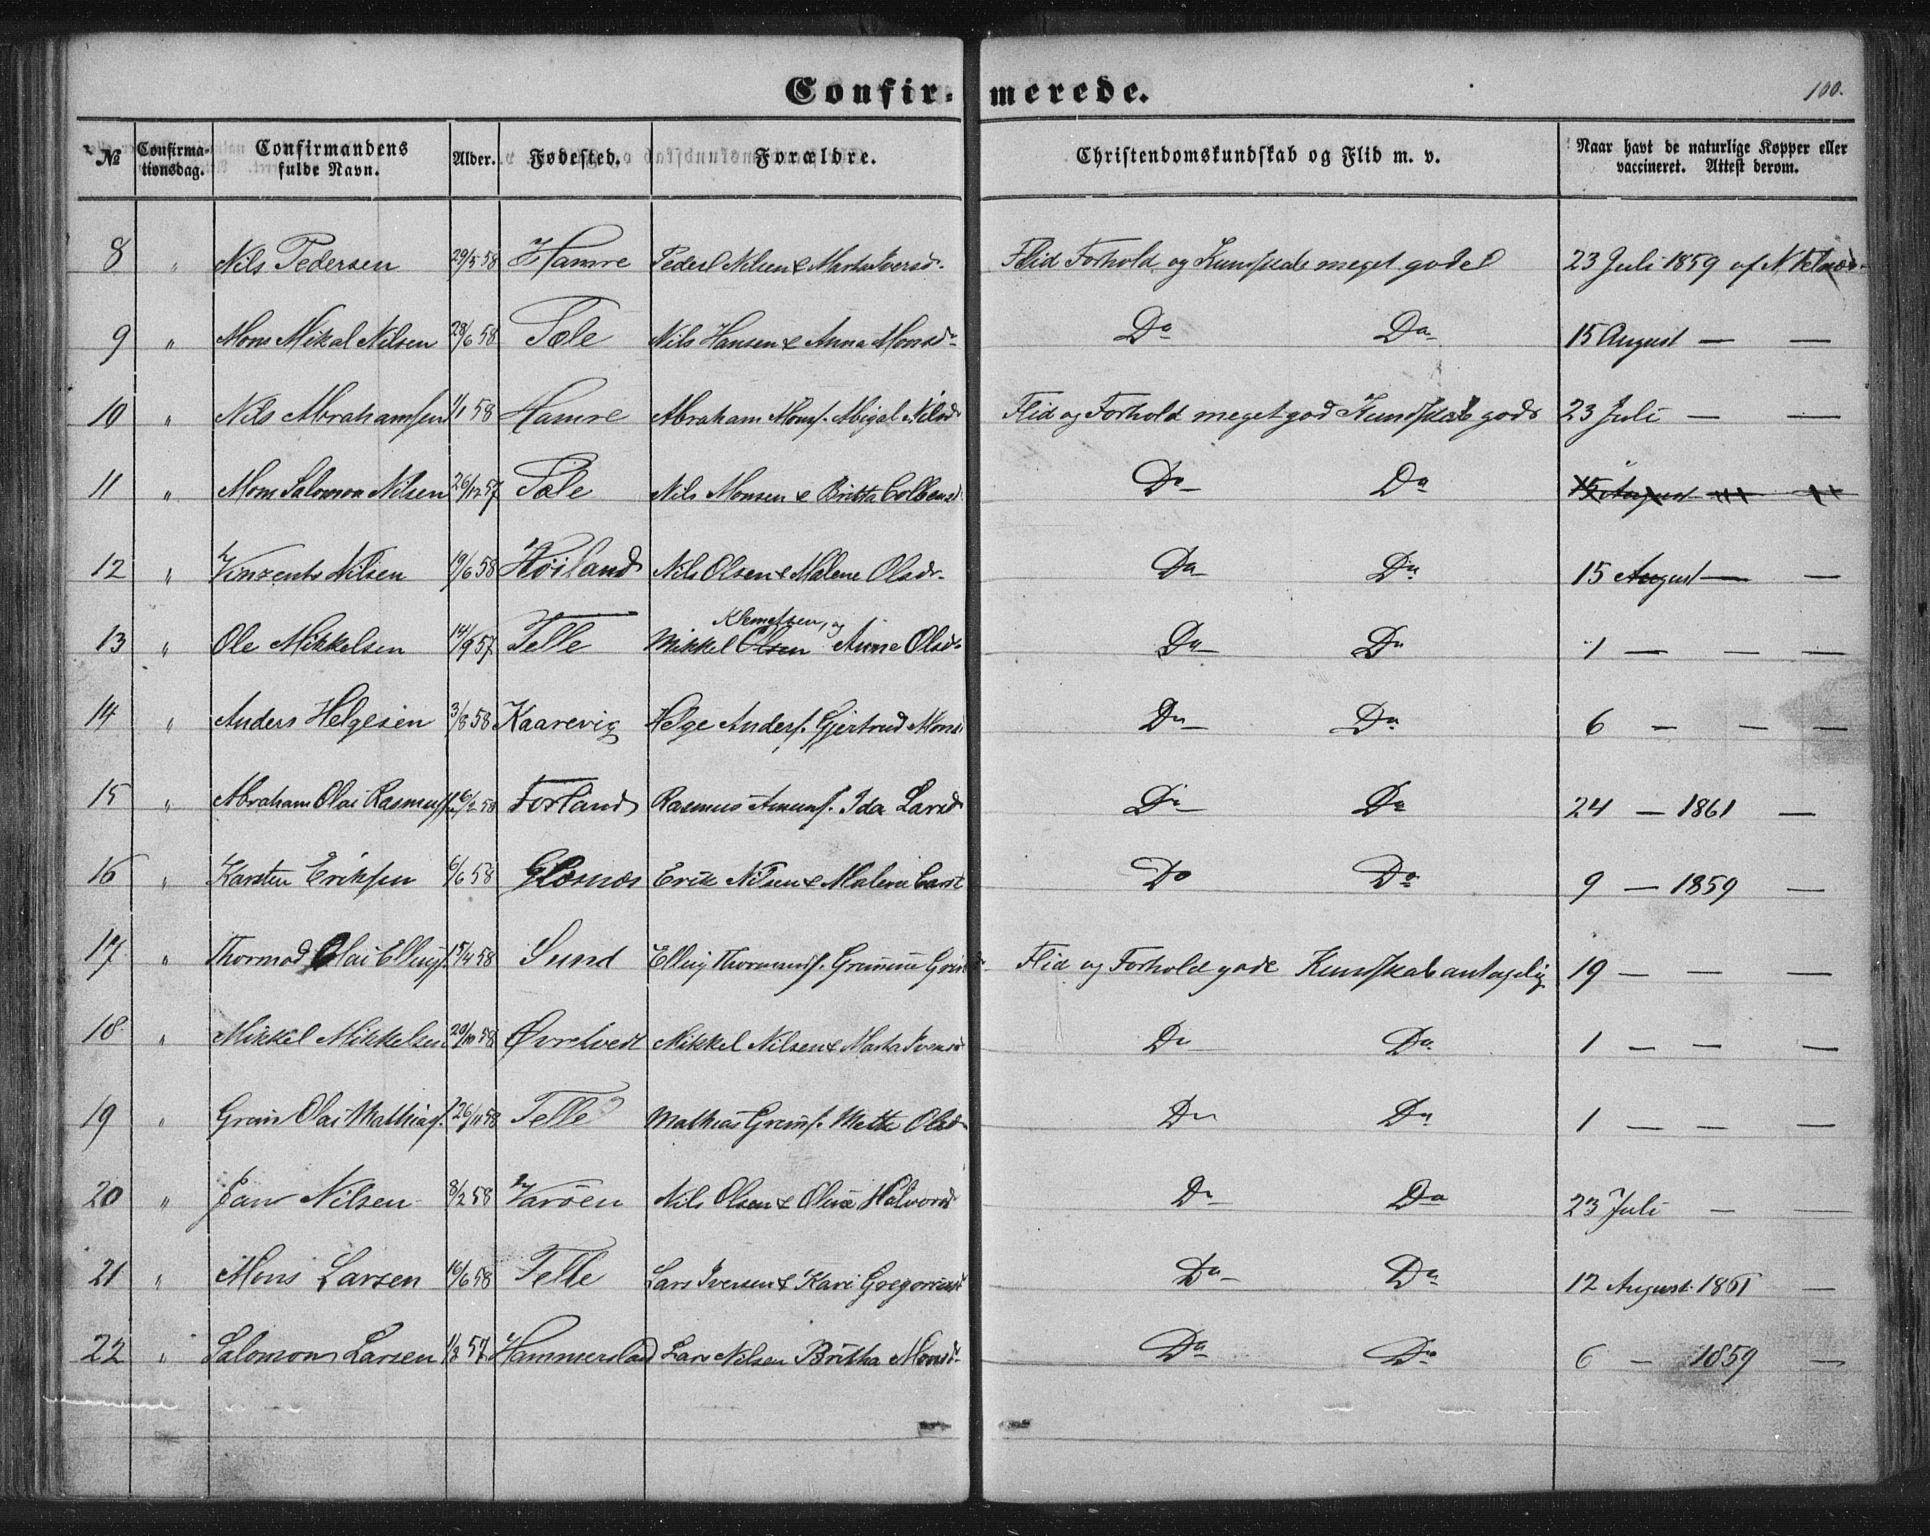 Confirmerede.
100.
№ Confirmationsdag. Confirmandens fulde Navn. Alder. Fødested. Forældre. Christendomskundskab og Flid m. v. Naar havt de naturlige Kopper eller vaccineret. Attest derom.
8 " Nils Pedersen 29/5 58 Hamre Peder Nilsen & Marta Iversd. Flid Forhold og Kundskab meget god 23 Juli 1859 af N.
9 " Mons Mikal Nilsen 28/6 58 Tæle Nils Hansen & Anna Monsd. Do Do 15 August — —
10 " Nils Abrahamsen 1/1 58 Hamre Abraham Mons. Abigal Nilsd. Flid og Forhold meget god Kundskab god 23 Juli — —
11 " Mons Salomon Nilsen 26/12 57 Tæle Nils Monsen & Britta Colbensd. Do Do 15 August — —
12 " Vinzents Nilsen 19/6 58 Høiland Nils Olsen & Malene Olsdr. Do Do 15 August — —
13 " Ole Mikkelsen 14/9 57 Telle Mikkel Olsen Klemetsen, og Anne Olsd. Do Do 1 — — —
14 " Anders Helgesen 3/8 58 Kaarevig Helge Anders. Gjertrud Mons. Do Do 6 — — —
15 " Abraham Olai Rasmuss. 16/2 58 Forland Rasmus Amuns. Ida Larsd. Do Do 24 — 1861 —
16 " Karsten Eriksen 6/6 58 Glæsnæs Erik Nilsen & Malene Carst. Do Do 9 — 1859 —
17 " Thormod Olai Ellings. 15/4 58 Sund Elling Thormods. Flid og Forhold gode Kundskab antagelig 19 — — —
18 " Mikkel Mikkelsen 20/10 58 Øvretvedt Mikkel Nilsen & Marta Iversd. Do Do 1 — — —
19 " Grim Olai Mathias. 26/11 58 Telle Mathias Grims. Mette Olsd. Do Do 1 — — —
20 " Jan Nilsen 8/2 58 Varöen Nils Olsen & Oline Halvorsd. Do Do 23 Juli — —
21 " Mons Larsen 16/6 58 Telle Lars Iversen & Kari Gregoriusd. Do Do 12 August 1861 —
22 " Salomon Larsen 1/8 57 Hammersland Lars Nilsen Britha Monsd. Do Do 6 — 1859 —